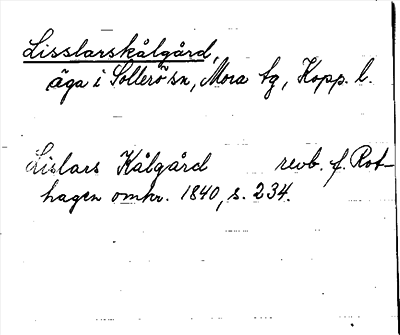 Lisslarskålgård,
äga i Sollerö sn, Mora tg, Kopp. l.
Lislars Kålgård revb. f. Rot-
hagen omkr. 1840, s. 234.